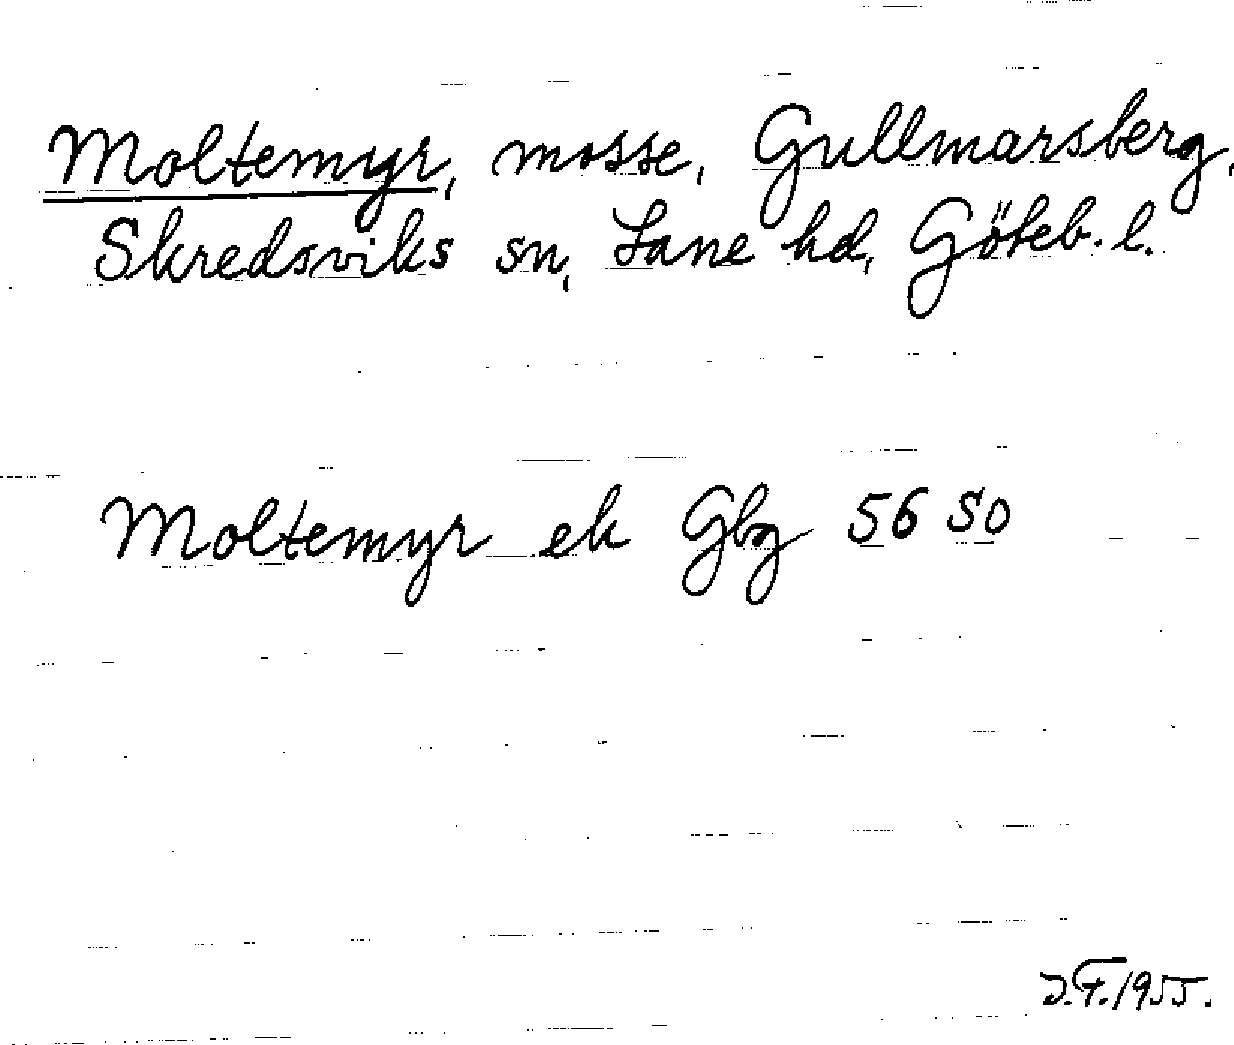 Moltemyr, mosse, Gullmarsberg,
Skredsviks sn, Lane hd, Göteb. l.
Moltemyr ek Gbg 56 SO
J.F. 1955.